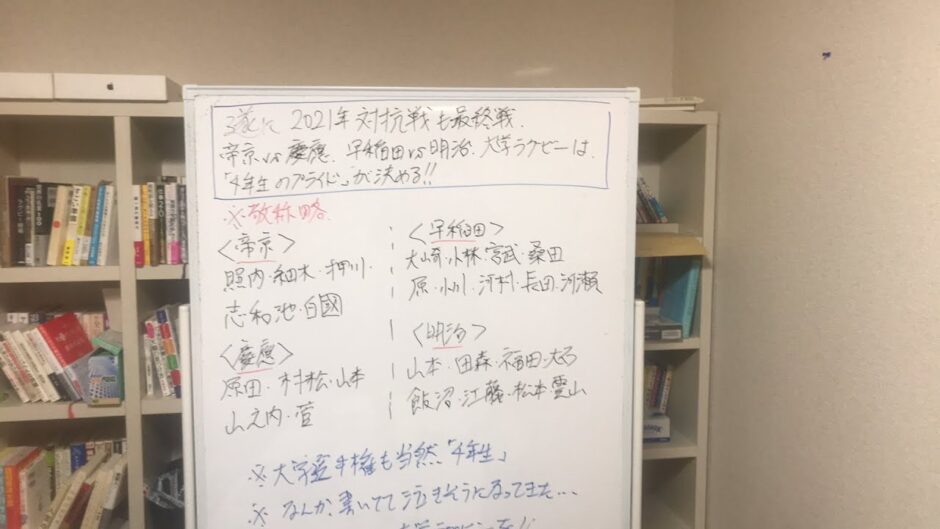 遂に 2021年 対抗戦も最終戦.
帝京vs慶應. 早稲田vs明治. 大学ラグビーは、
「4年生のプライド」が決める!!
※敬称略
<帝京>
照内・細木・押川・
志和池・白國
<慶應>
原田・村松・山本
山之内・菅
<早稲田>
大崎・小林・宮武・桑田
原・小川・河村・長田・河瀬
<明治>
山本・田森・福田・大石
飯沼・江藤・松本・雲山
※大学選手権も当然「4年生」
※なんか、書いてて泣きそうになってきた…